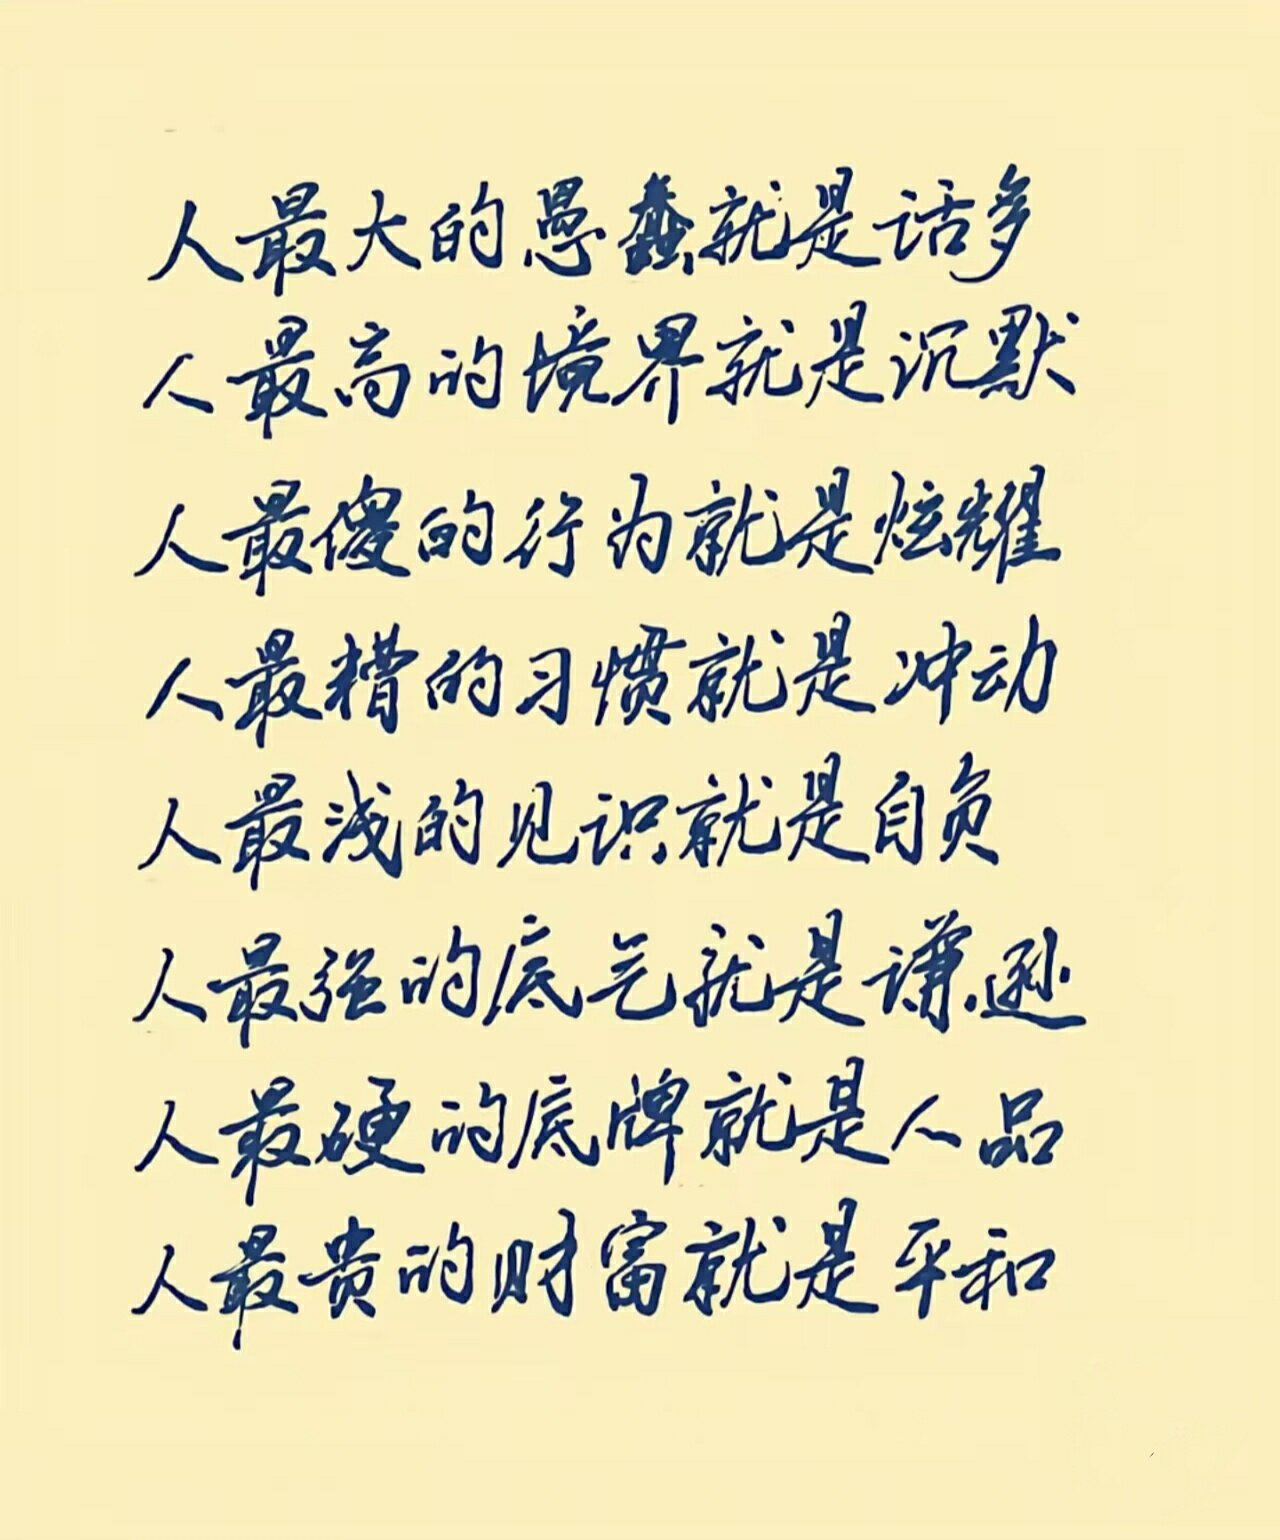 人最大的愚蠢就是话多
人最高的境界就是沉默
人最傻的行为就是炫耀
人最糟的习惯就是冲动
人最浅的见识就是自负
人最强的底气就是谦逊
人最硬的底牌就是人品
人最贵的财富就是平和